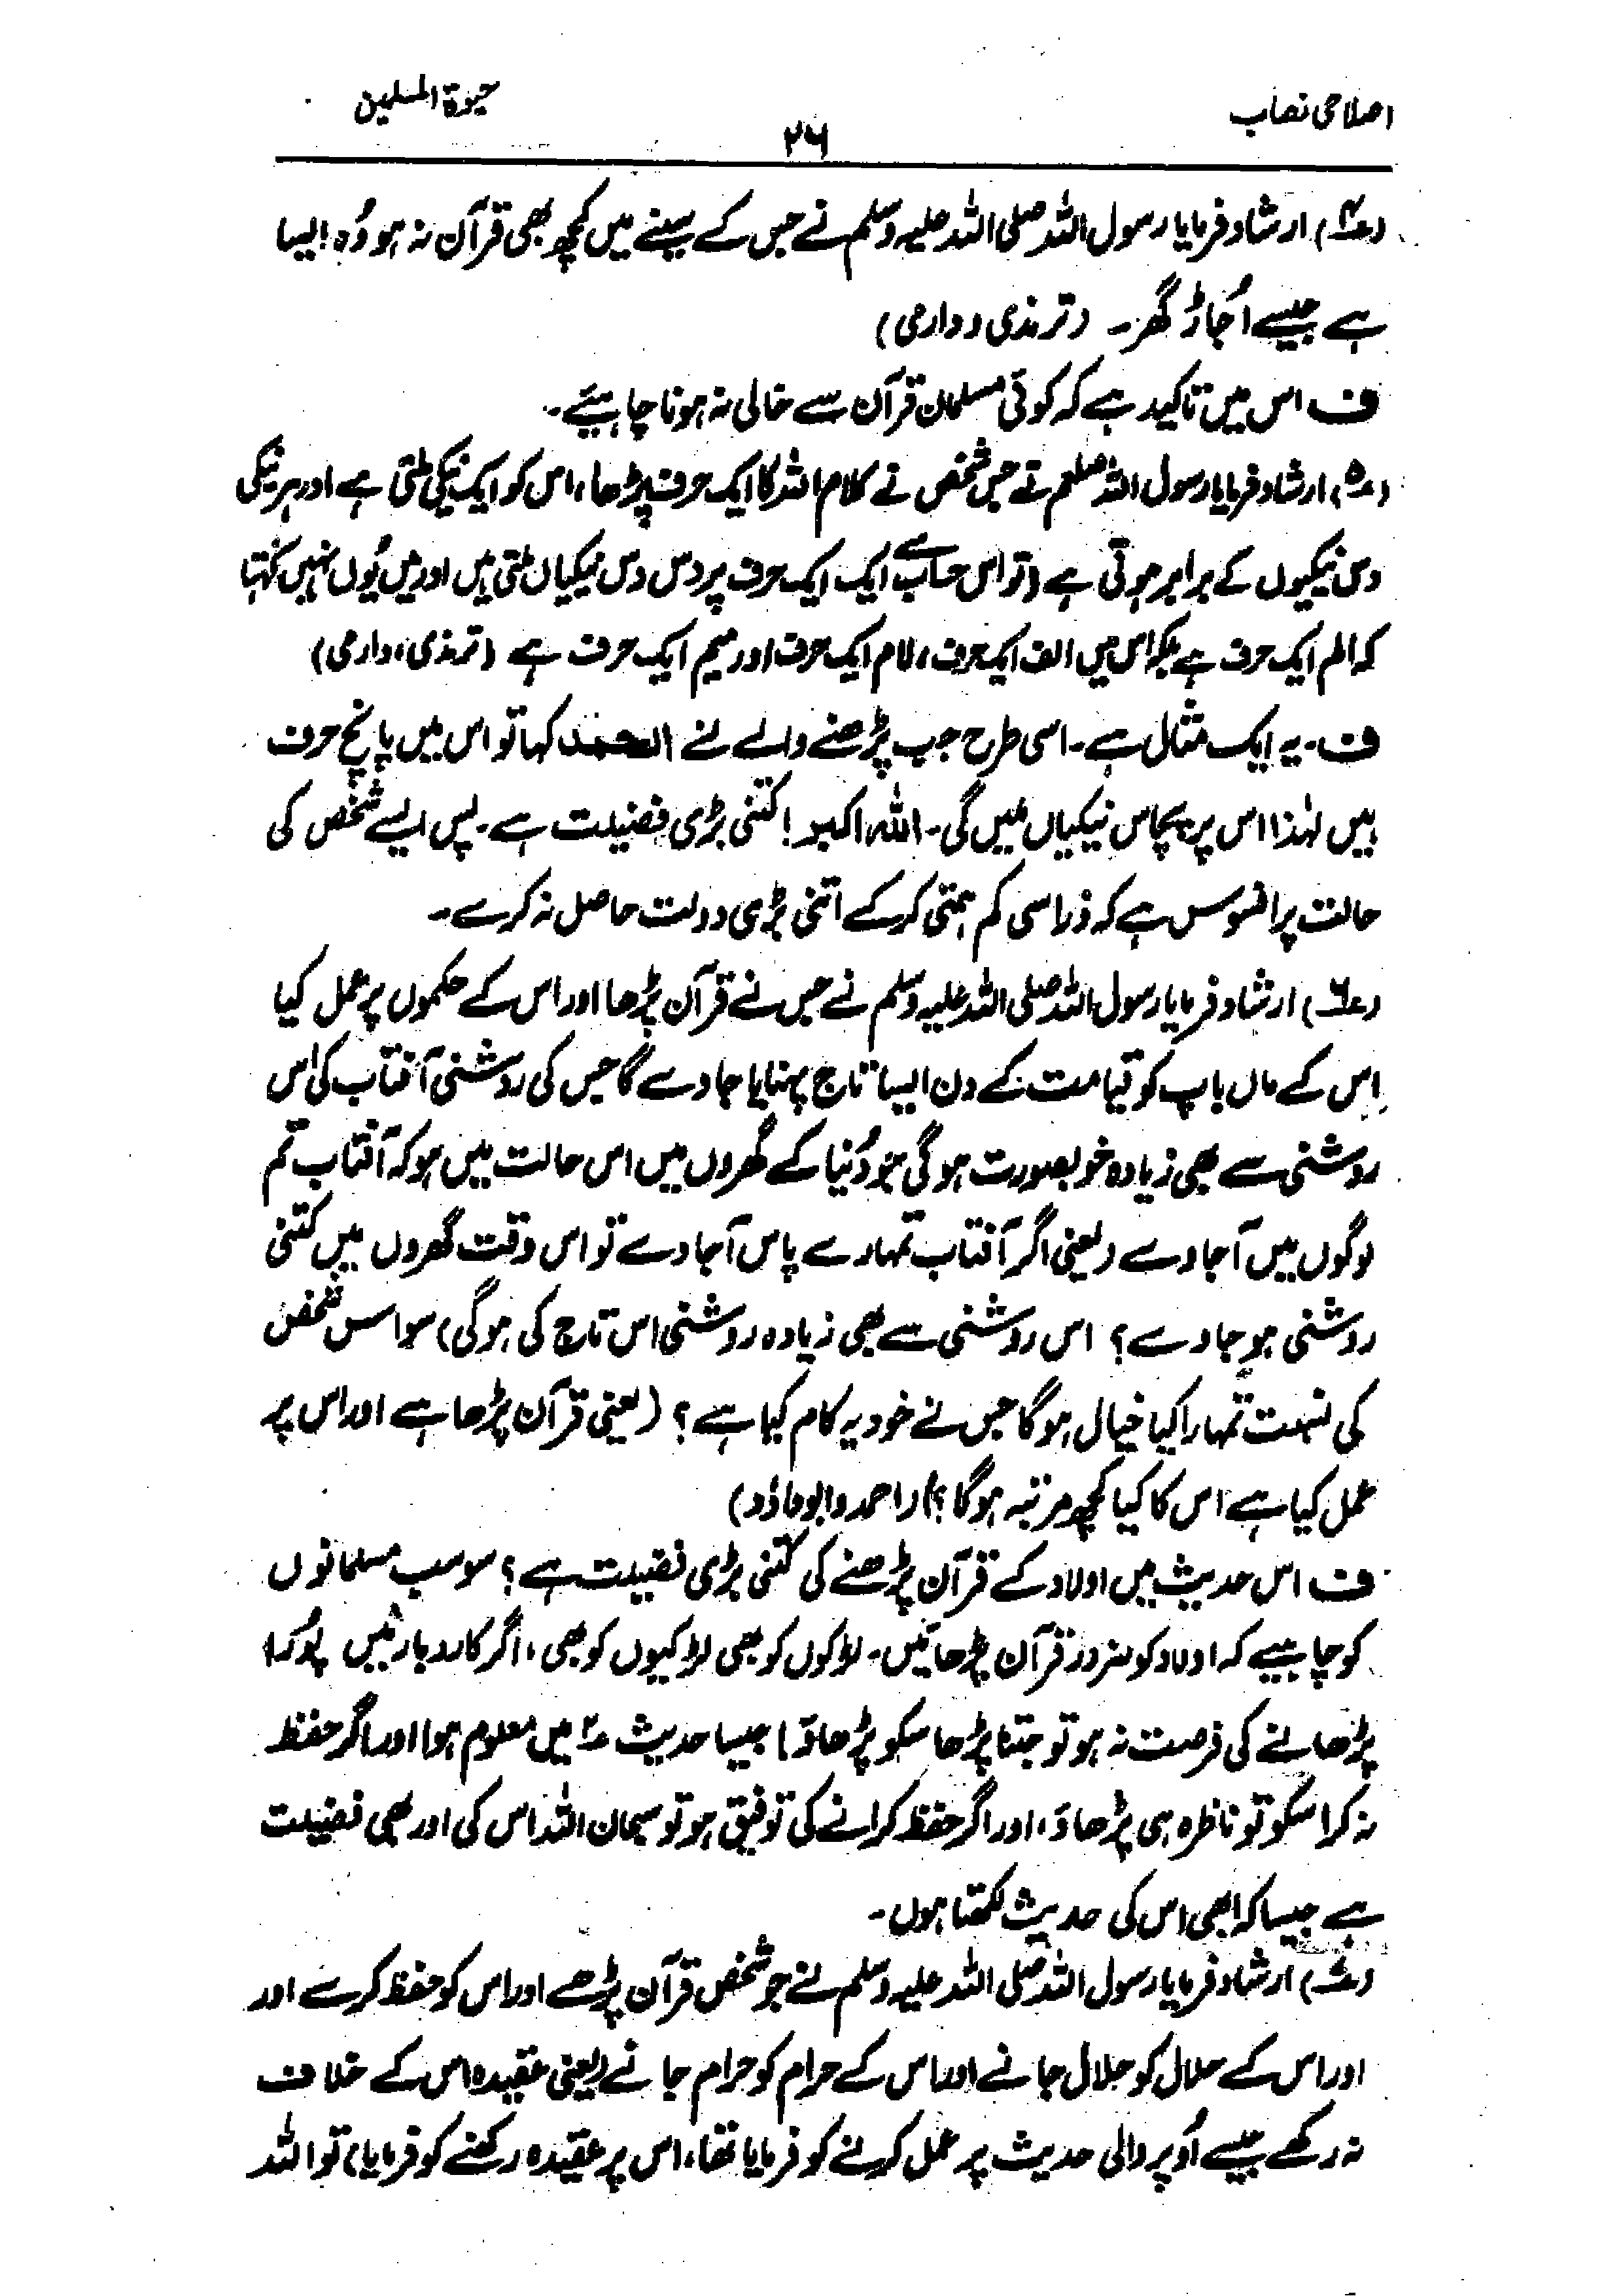 اصلاحی نصاب
حیوٰۃ المسلمین
۲۶
(۴) ارشاد فرمایا رسول اللہ صلی اللہ علیہ وسلم نے جس کے سینے میں کچھ بھی قرآن نہ ہو وُہ ایسا
ہے جیسے اُجاڑ گھر۔ (ترمذی و دارمی)
ف اس میں تاکید ہے کہ کوئی مسلمان قرآن سے خالی نہ ہونا چاہیئے۔
(۵) ارشاد فرمایا رسول اللہ صلعم نے جس شخص نے کلام اللہ کا ایک حرف پڑھا، اس کو ایک نیکی ملتی ہے اور ہر نیکی
دس نیکیوں کے برابر ہوتی ہے (تو اس حساب سے ایک ایک حرف پر دس دس نیکیاں ملتی ہیں اور میں یُوں نہیں کہتا
کہ الم ایک حرف ہے بلکہ اس میں الف ایک حرف، لام ایک حرف اور میم ایک حرف ہے (ترمذی، دارمی)
ف۔ یہ ایک مثال ہے۔ اسی طرح جب پڑھنے والے نے الحمد کہا تو اس میں پانچ حرف
ہیں لہٰذا اس پر پچاس نیکیاں ملیں گی۔ اللہ اکبر! کتنی بڑی فضیلت ہے۔ پس ایسے شخص کی
حالت پر افسوس ہے کہ ذرا سی کم ہمتی کر کے اتنی بڑی دولت حاصل نہ کرے۔
(۶) ارشاد فرمایا رسول اللہ صلی اللہ علیہ وسلم نے جس نے قرآن پڑھا اور اس کے حکموں پر عمل کیا
اس کے ماں باپ کو قیامت کے دن ایسا تاج پہنایا جاوے گا جس کی روشنی آفتاب کی اس
روشنی سے بھی زیادہ خوبصورت ہو گی جو دُنیا کے گھروں میں اس حالت میں ہو کہ آفتاب تم
لوگوں میں آجاوے (یعنی اگر آفتاب تمہارے پاس آجاوے تو اس وقت گھروں میں کتنی
روشنی ہو جاوے؟ اس روشنی سے بھی زیادہ روشنی اس تاج کی ہو گی) سو اس شخص
کی نسبت تمہارا کیا خیال ہو گا جس نے خود یہ کام کیا ہے؟ (یعنی قرآن پڑھا ہے اور اس پر
عمل کیا ہے اس کا کیا کچھ مرتبہ ہو گا؟) (احمد و ابوداؤد)
ف اس حدیث میں اولاد کے قرآن پڑھنے کی کتنی بڑی فضیلت ہے؟ سو سب مسلمانوں
کو چاہیے کہ اولاد کو ضرور قرآن پڑھائیں۔ لڑکوں کو بھی لڑکیوں کو بھی، اگر کاروبار میں پُورا
پڑھانے کی فرصت نہ ہو تو جتنا پڑھا سکو پڑھاؤ (جیسا حدیث ۲ میں معلوم ہوا اور اگر حفظ
نہ کرا سکو تو ناظرہ ہی پڑھاؤ، اور اگر حفظ کرانے کی توفیق ہو تو سبحان اللہ اس کی اور بھی فضیلت
ہے جیسا کہ ابھی اس کی حدیث لکھتا ہوں۔
ارشاد فرمایا رسول اللہ صلی اللہ علیہ وسلم نے جو شخص قرآن پڑھے اور اس کو حفظ کرے اور
اور اس کے حلال کو حلال جانے اور اس کے حرام کو حرام جانے (یعنی عقیدہ اس کے خلاف
نہ رکھے جیسے اُوپر والی حدیث پر عمل کرنے کو فرمایا تھا، اس پر عقیدہ رکھنے کو فرمایا) تو اللہ